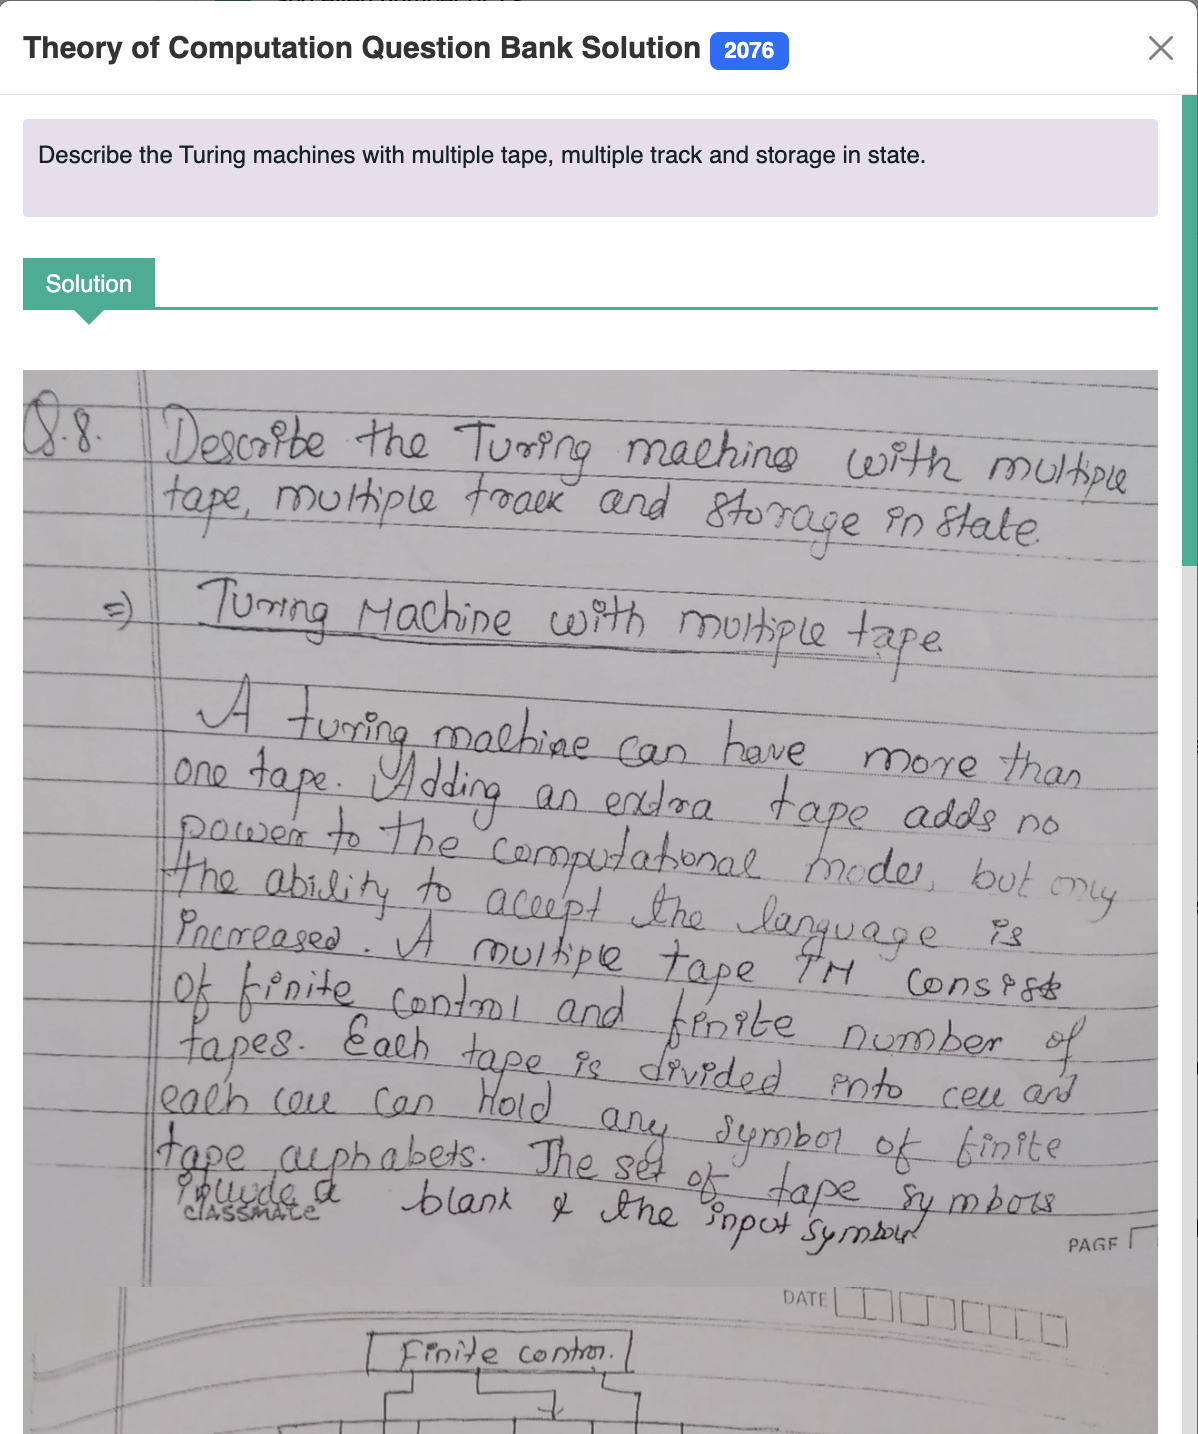 Theory of Computation Question Bank Solution 2076
Describe the Turing machines with multiple tape, multiple track and storage in state.
Solution
Q.8. Describe the Turing machines with multiple
tape, multiple track and storage in state.
=) Turing Machine with multiple tape.
A turing machine can have more than
one tape. Adding an extra tape adds no
power to the computational model, but only
the ability to accept the language is
increased. A multiple tape TM consists
of finite control and finite number of
tapes. Each tape is divided into cell and
each cell can Hold any symbol of finite
tape alphabets. The set of tape symbols
include a blank & the input symbol
CLASSMATE
PAGE
DATE
Finite control.